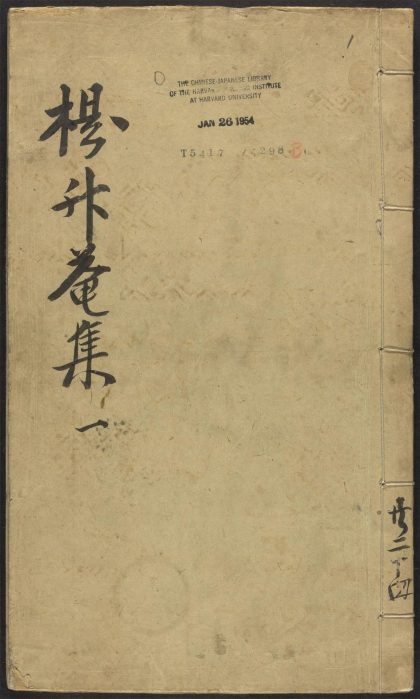 1
THE CHINESE-JAPANESE LIBRARY
OF THE HARVARD INSTITUTE
AT HARVARD UNIVERSITY
JAN 26 1954
T5417
楊升菴集
一